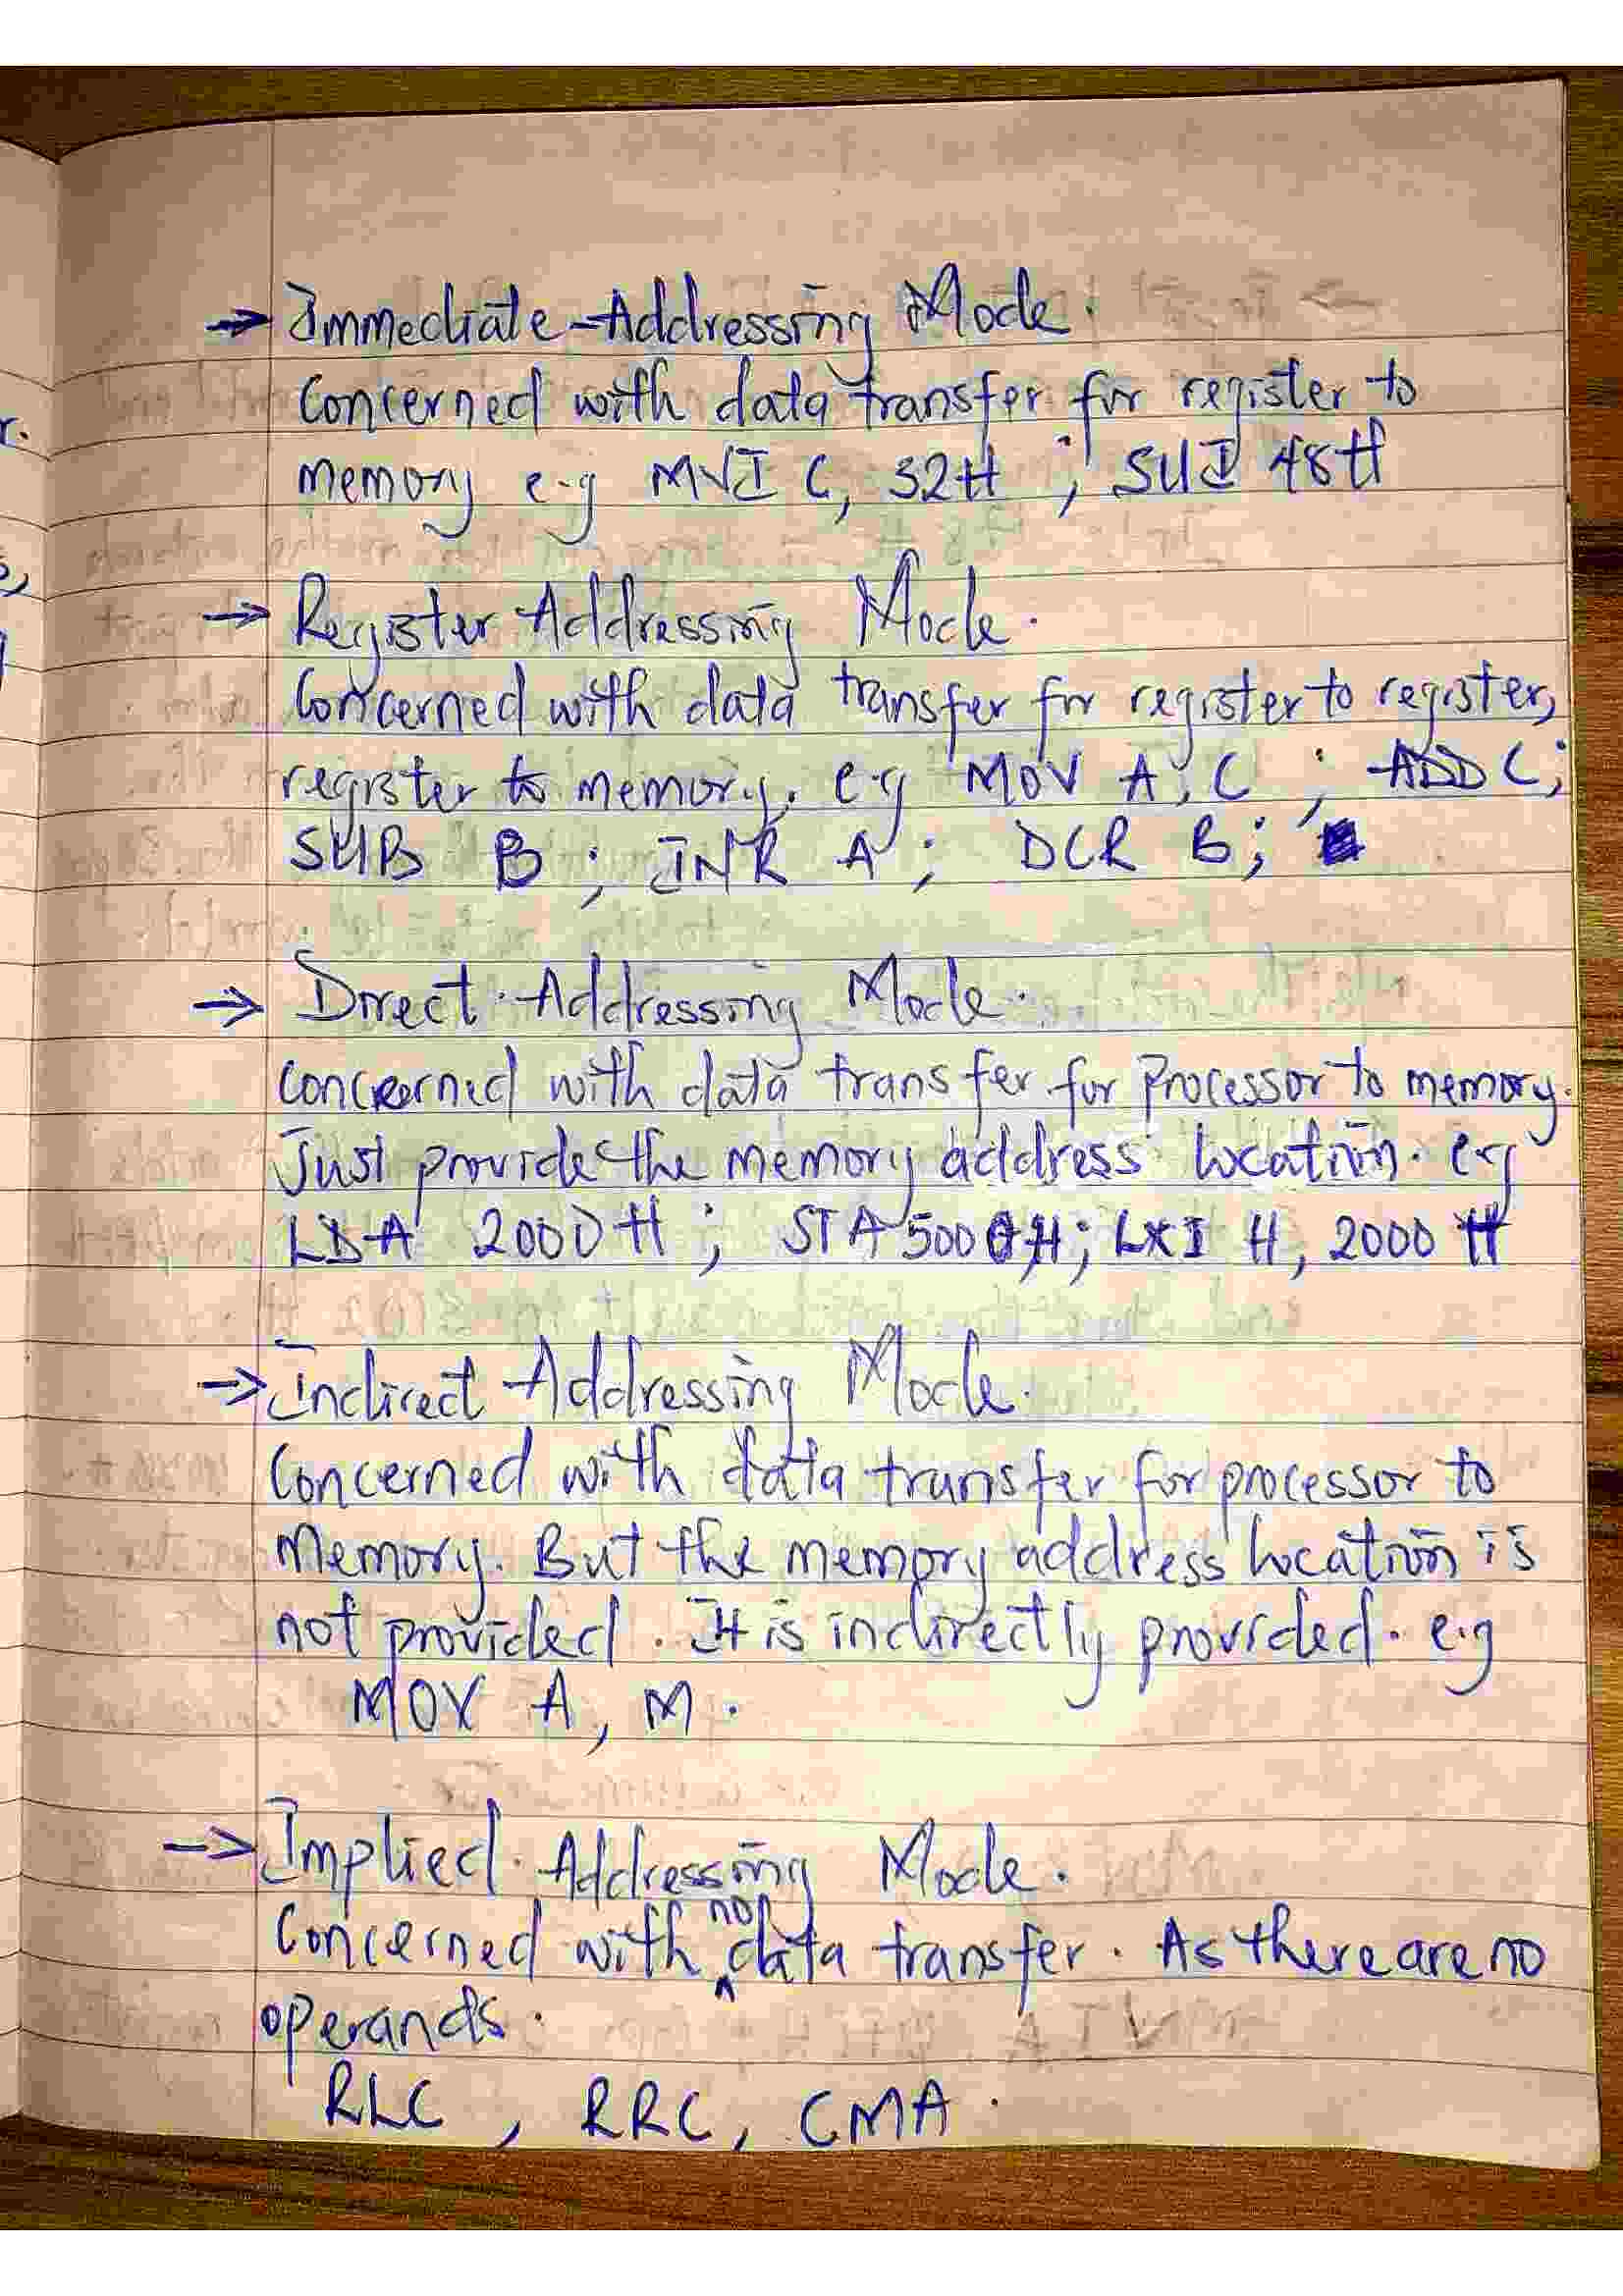 → Immediate-Addressing Mode.
Concerned with data transfer for register to
memory e.g MVI C, 32H ; SUI 48H
→ Register Addressing Mode.
Concerned with data transfer for register to register,
register to memory. e.g MOV A, C ; ADD C;
SUB B ; INR A ; DCR B;
→ Direct Addressing Mode.
Concerned with data transfer for Processor to memory.
Just provide the memory address location. e.g
LDA 2000H ; STA 5000H; LXI H, 2000 H
→ Indirect Addressing Mode.
Concerned with data transfer for processor to
Memory. But the memory address location is
not provided. It is indirectly provided. e.g
MOV A, M.
→ Implied Addressing Mode.
Concerned with no data transfer. As there are no
operands.
RLC , RRC, CMA.